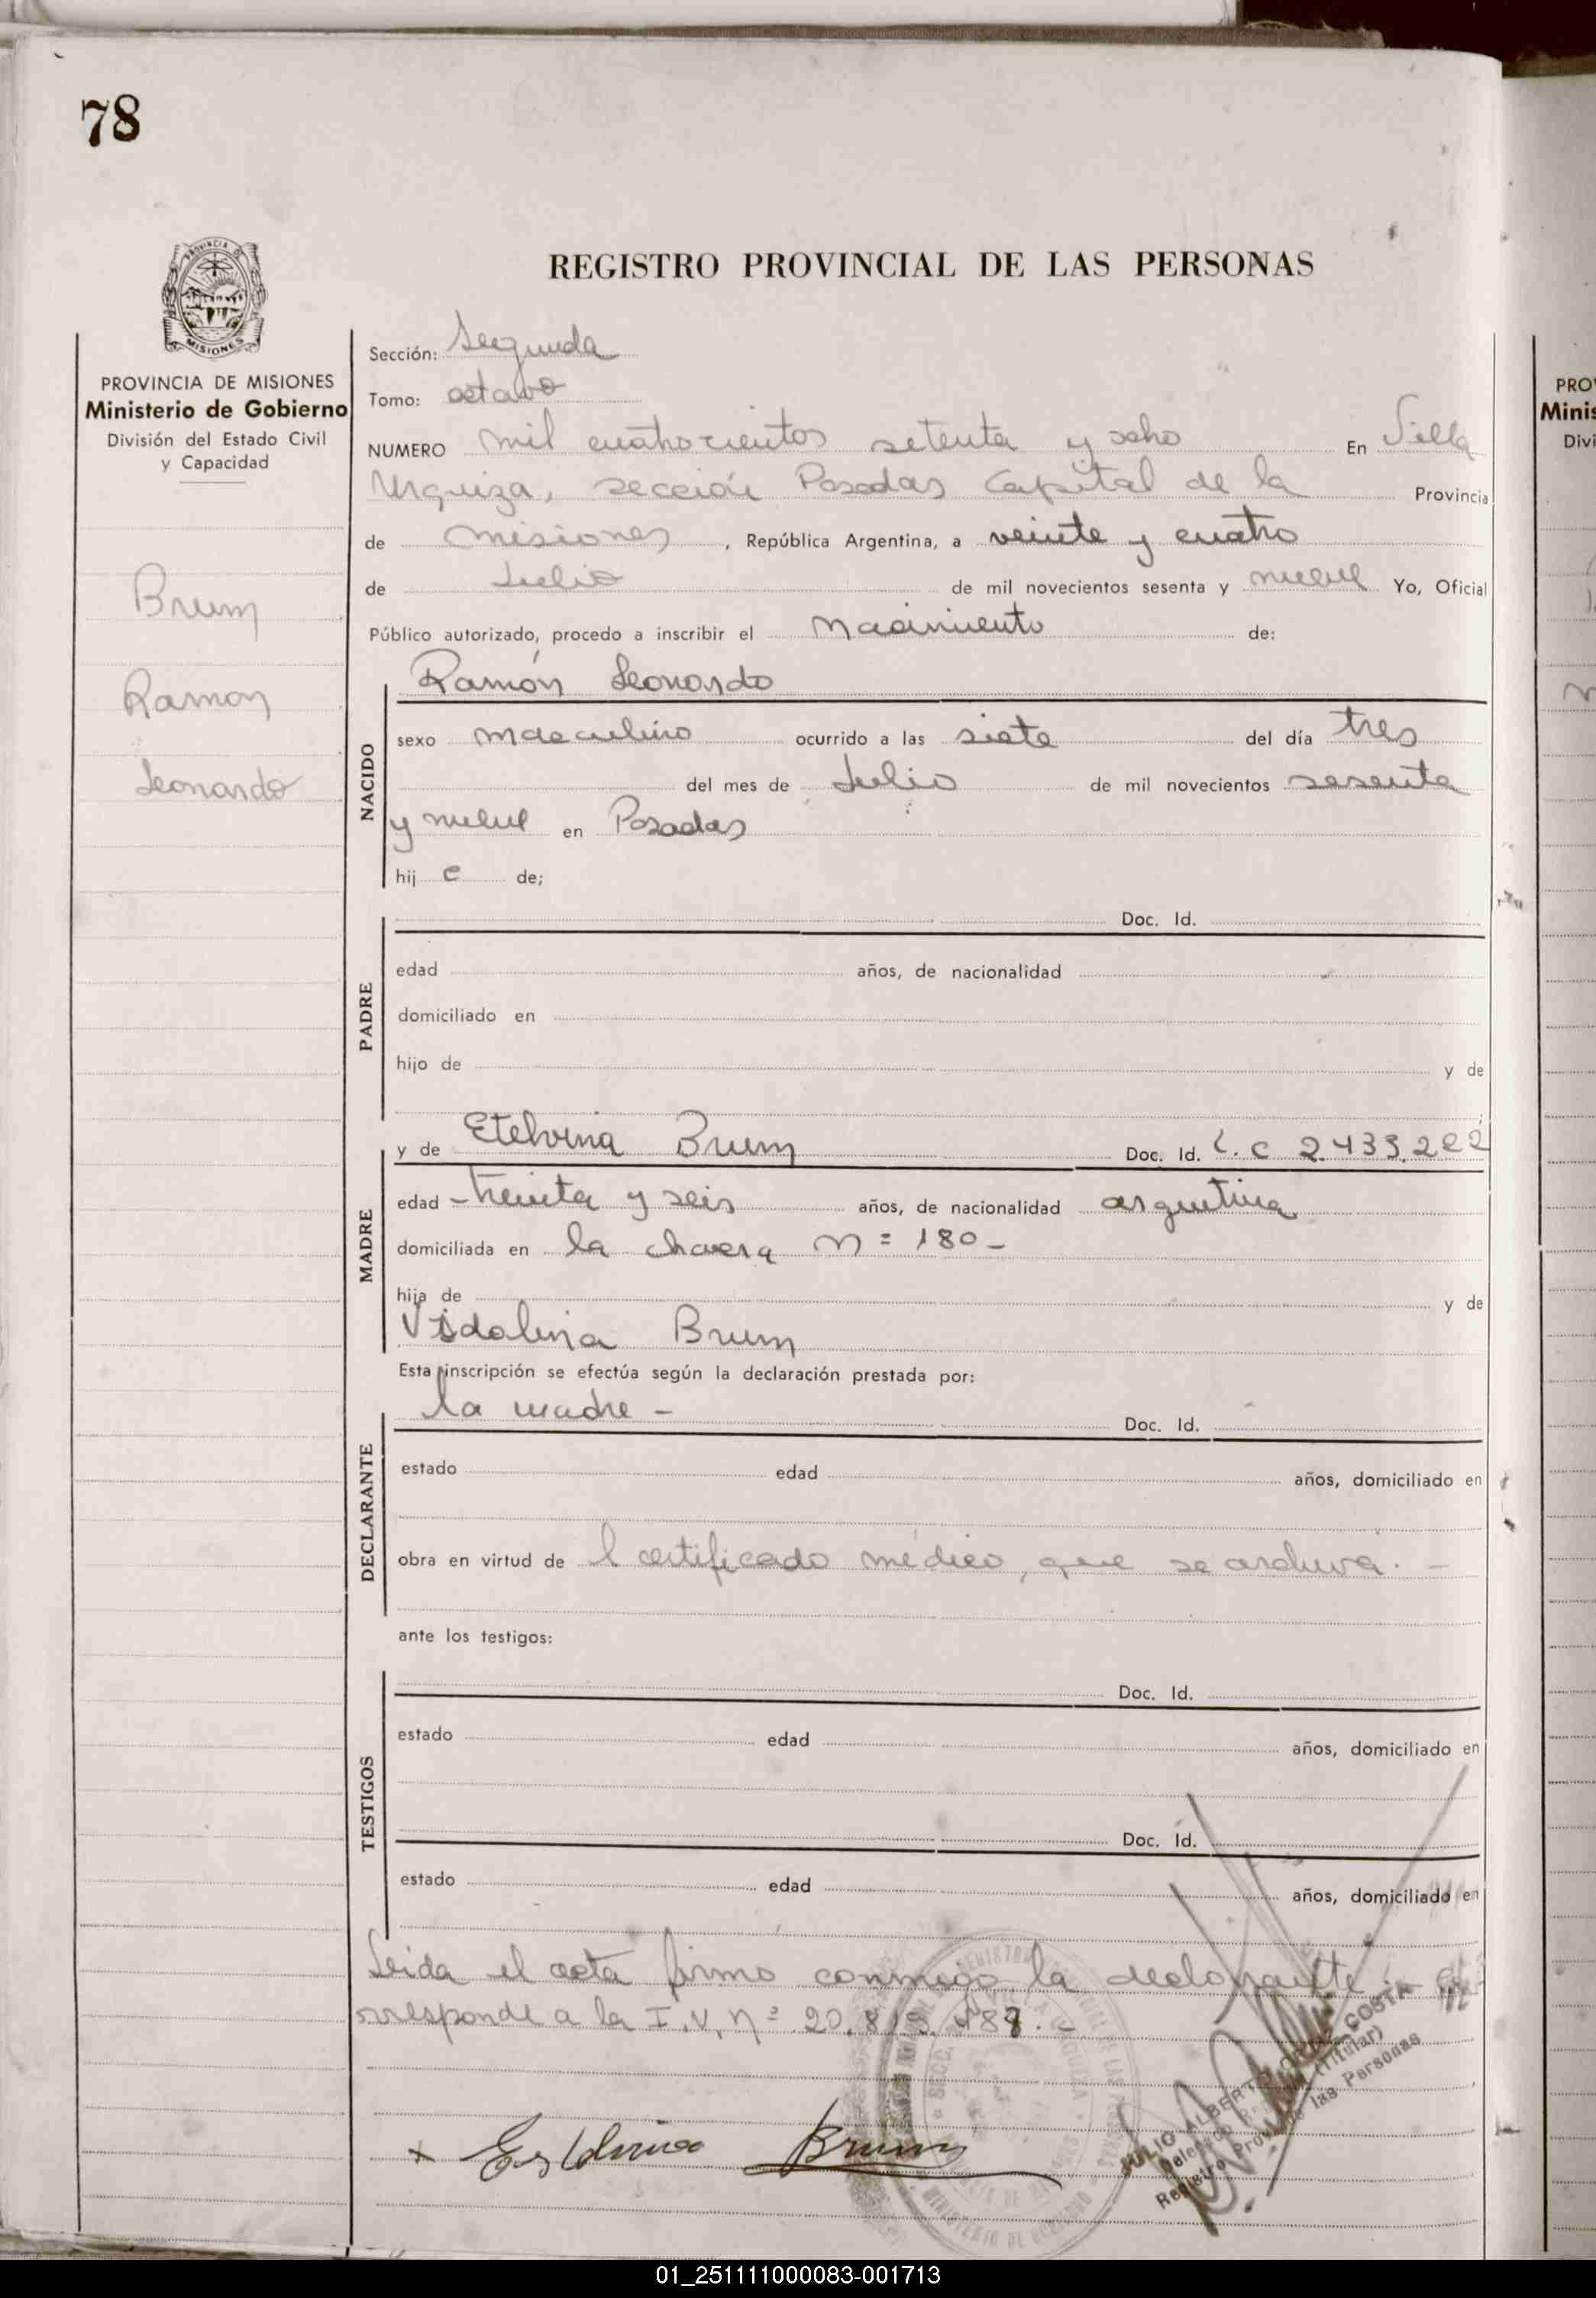 78
PROVINCIA DE MISIONES
Ministerio de Gobierno
División del Estado Civil
y Capacidad
Brum
Ramon
Leonardo
REGISTRO PROVINCIAL DE LAS PERSONAS
Sección: Segunda
Tomo: octavo
NUMERO mil cuatrocientos setenta y ocho En Villa
Urquiza, sección Posadas Capital de la Provincia
de Misiones, República Argentina, a veinte y cuatro
de Julio de mil novecientos sesenta y nueve Yo, Oficial
Público autorizado, procedo a inscribir el Nacimiento de:
Ramón Leonardo
NACIDO
sexo masculino ocurrido a las siete del día tres
del mes de Julio de mil novecientos sesenta
y nueve en Posadas
hij o de;
PADRE
Doc. Id.
edad años, de nacionalidad
domiciliado en
hijo de y de
MADRE
y de Etelvina Brum Doc. Id. L. C 2.433.222
edad treinta y seis años, de nacionalidad argentina
domiciliada en la chacra N= 180-
hija de y de
Vidalina Brum
Esta inscripción se efectúa según la declaración prestada por:
DECLARANTE
la madre - Doc. Id.
estado edad años, domiciliado en
obra en virtud de l certificado médico, que se archiva. -
ante los testigos:
TESTIGOS
Doc. Id.
estado edad años, domiciliado en
Doc. Id.
estado edad años, domiciliado en
Leida el acta firma conmigo la declarante.- Co
rresponde a la I.V. nº 20.819.487. -
+ Brum
JULIO ALBERTO COSTA
(Titular)
Registro Prov. de las Personas
01_251111000083-001713